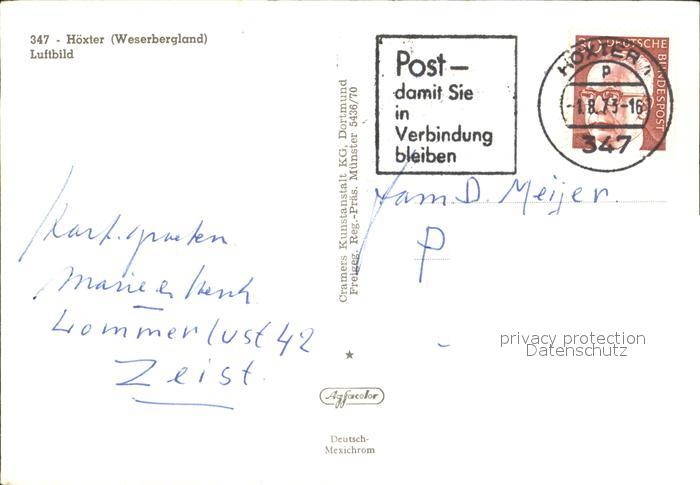 347 - Höxter (Weserbergland)
Luftbild
Post –
damit Sie
in
Verbindung
bleiben
DEUTSCHE
BUNDESPOST
HÖXTER 1
p
-1.8.73-16
347
Fam D. Meijer.
P
Hart. groeten
Marie en Henk
Lommerlust 42
Zeist.
Cramers Kunstanstalt KG, Dortmund
Freigeg. Reg.-Präs. Münster 5436/70
Agfacolor
Deutsch-
Mexichrom
privacy protection
Datenschutz